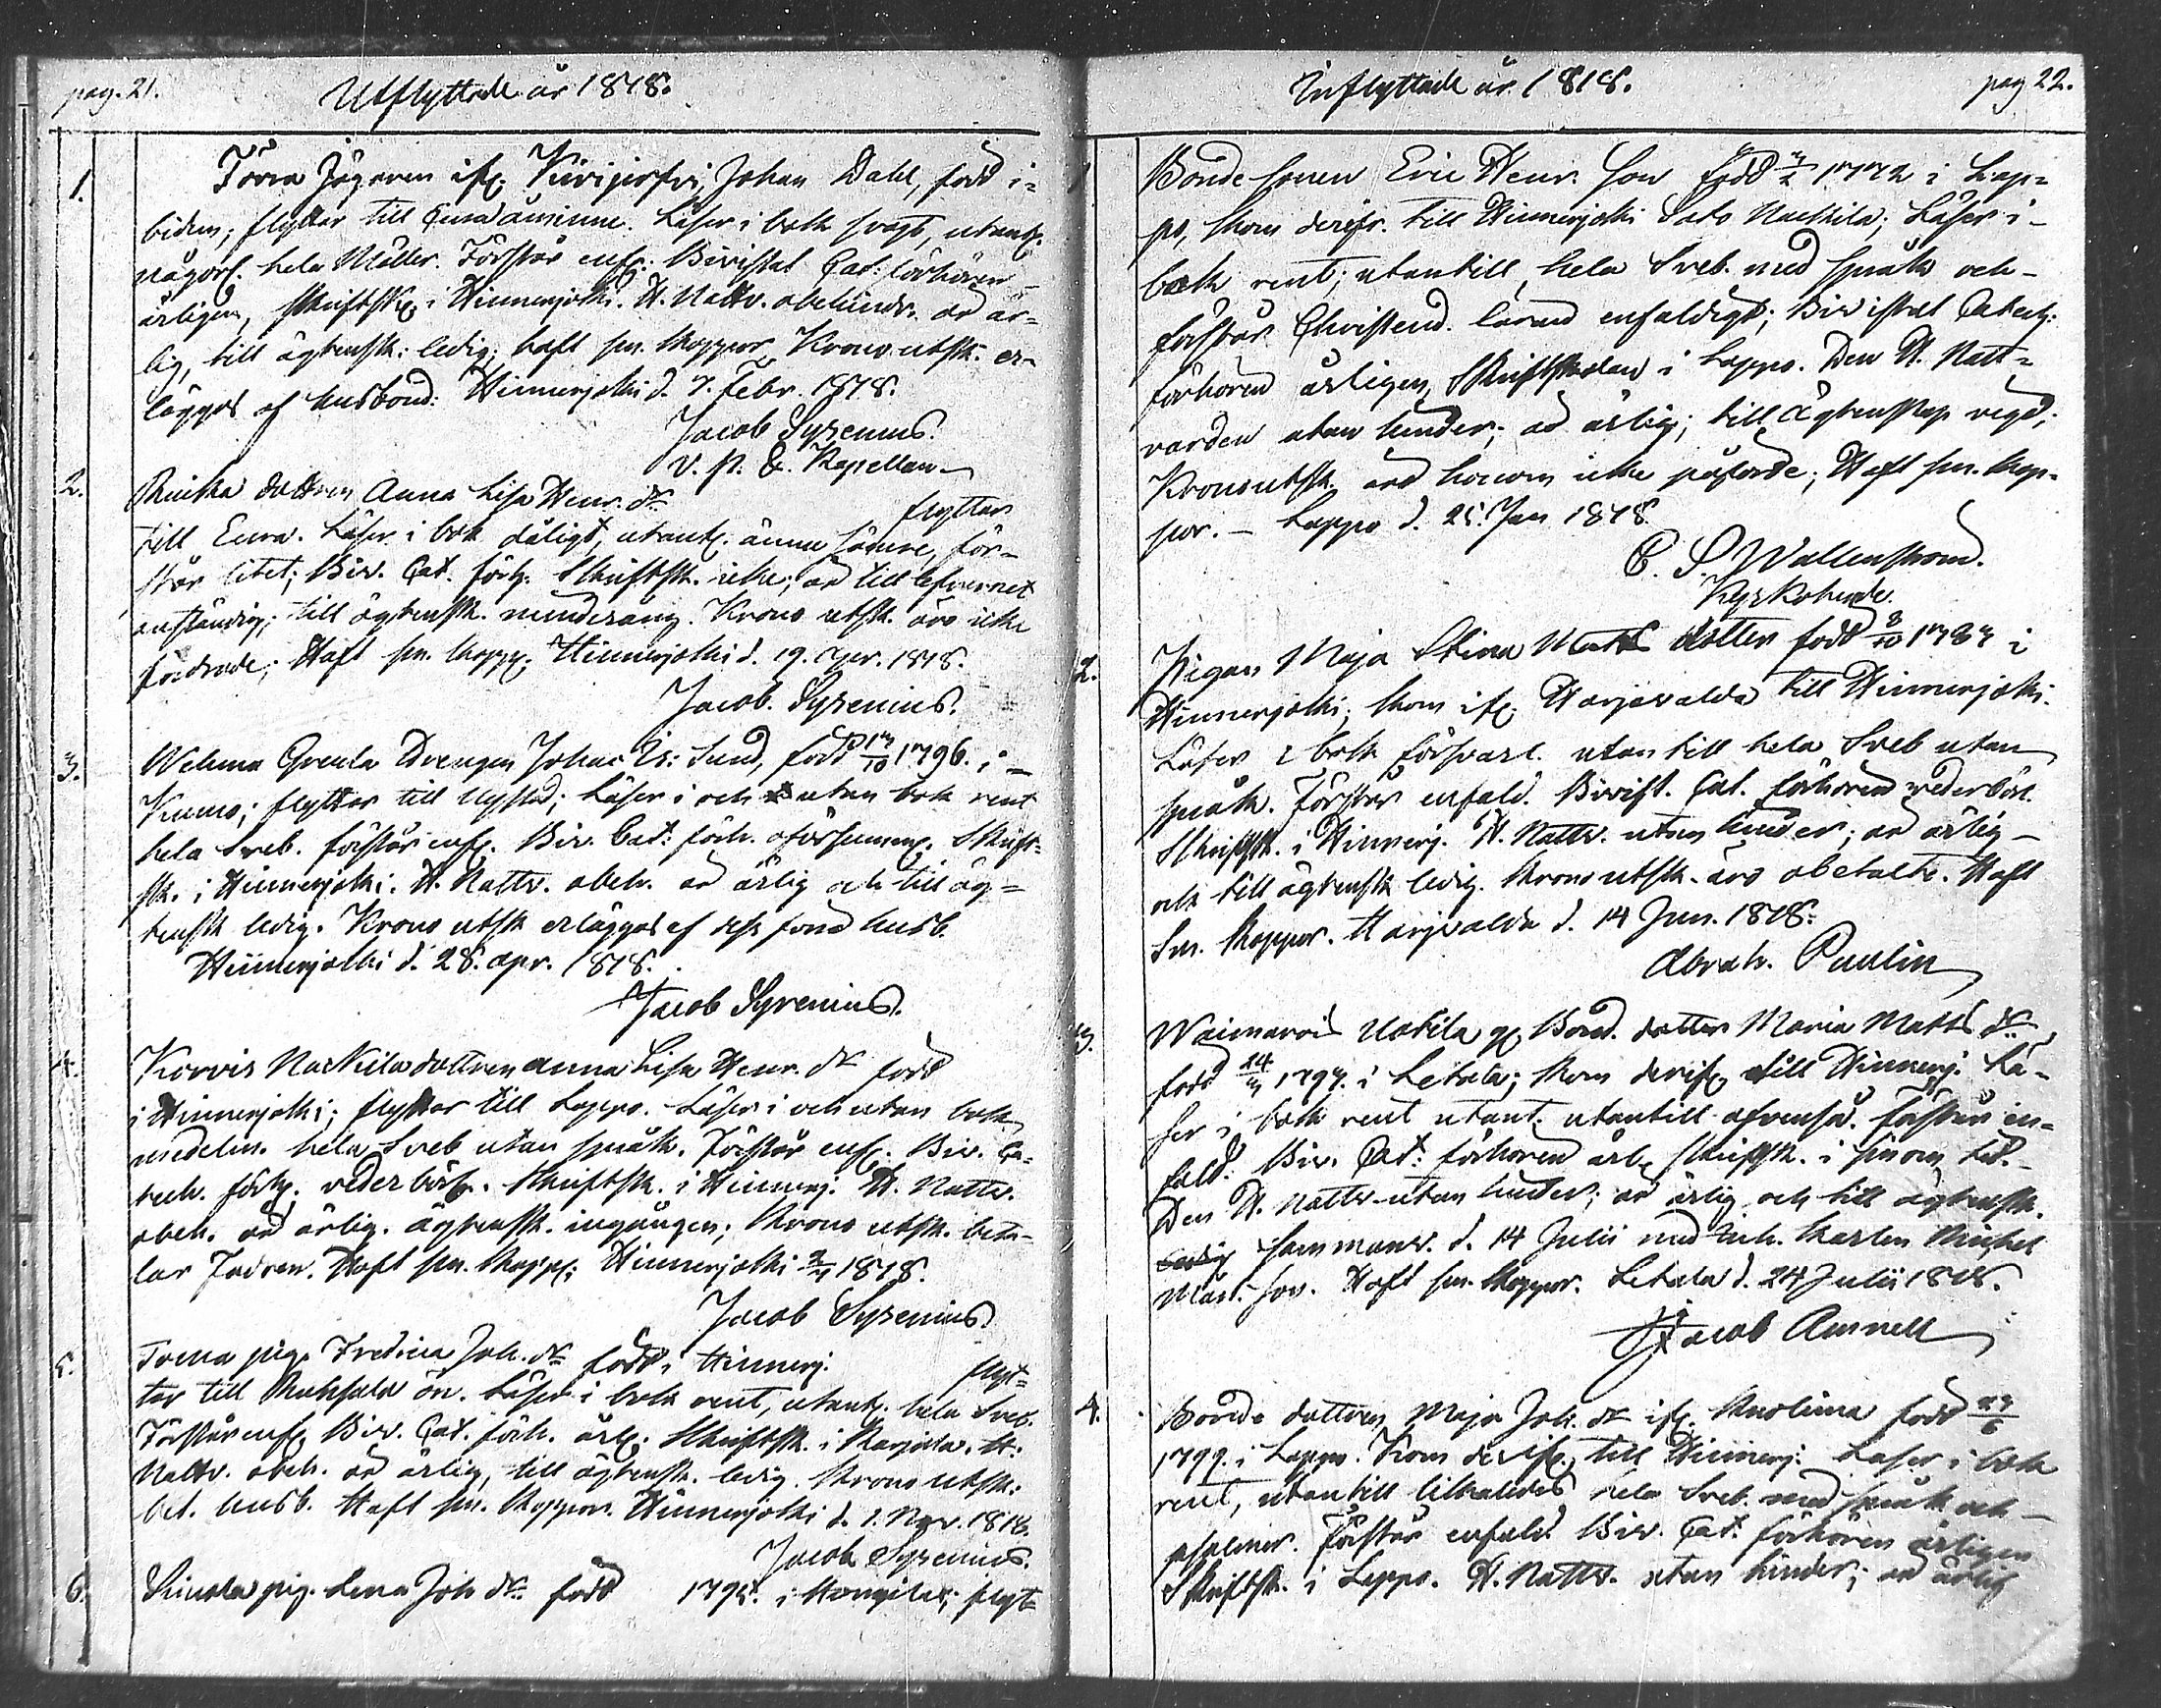 pag. 21.
Utflyttade år 1818.
1. Torra Jägaren ifr. Kivijerfvi, Johan Dahl, född i
flyttar till Eura åminne. Läser i bok svagt, utant.
någorl. hela Möller. Förstår enf. Bivistat Cat: förhören
årligen, Skriftsk. i Hinnerjoki. H. Nattv. obehindr. är är=
lig, till ägtensk: ledig; haft sn. koppor Krono utsk. er=
lägges af husbond: Hinnerjoki d. 7. Febr. 1818.
Jacob Syrenius.
V. P. & Kapellan
2. dottren Anna Lisa Henr. dr. flyttar
till Eura. Läser i bok dåligt, utant. ännu sämre, för=
står litet; Biv. Cat. förh. Skriftsk. icke; är till lefvernet
anständig; till ägtensk. minderårig. Krono utsk. äro icke
fordrade; Haft sn. kopp. Hinnerjoki d. 19. Apr. 1818.
Jacob. Syrenius.
3. Drengen Johan Is: Lund, född 17/10 1796. i
Kumo; flyttar till Nystad; Läser i och utan bok rent
hela Sveb. förstår enf. Biv. Cat: förh. oförsumm. Skrift=
sk. i Hinnerjoki. H. Nattv. obeh. är ärlig och till äg=
tensk ledig. Krono utsk erlägges af dess förra husb.
Hinnerjoki d. 28. apr. 1818.
Jacob Syrenius.
4. Korvis Nackila dottren Anna Lisa Henr. dr född
i Hinnerjoki; flyttar till Loppo. Läser i och utan bok
medelm. hela Sveb utan språk. Förstår enf. Biv. Ca=
tech. förh. vederbörl. Skriftsk. i Hinnerj. H. Nattv.
obeh. är ärlig. ägtensk. ingången; Krono utsk. beta=
lar Fadren. Haft sn. kopp. Hinnerjoki 1818.
Jacob Syrenius
5. pig. Fredrica Joh. dr född i Hinnerj. flyt=
tar till ön. Läser i bok rent, utant. hela Sveb.
Förstår enf. Biv. Cat. förh. årl. Skriftsk. i H.
Nattv. obeh. är ärlig, till ägtensk. ledig. Krono utsk:
bet. husb. Haft sn. koppor. Hinnerjoki d. 1. Nov. 1818.
Jacob Syrenius.
6. pig. Lena Joh dr. född 1795. i Hongilax; flyt=
Inflyttade år 1818.
pag 22.
Bonde sonen Eric Henr. Son född 1772 i Lap=
po, kom derifr. till Hinnerjoki Nackila; Läser i
bok rent; utantill hela Sveb. med språk och
förstår Christend. lärand enfaldigt; Bivistat Catech:
förhören årligen, Skriftskolan i Lappo. Den H. Natt=
varden utan hinder; är ärlig; till ägtenskap vigd;
Krono utsk. äro honom icke påförde; Haft sn. kop=
por. Lappo d. 25. Jan 1818.
C. S. Wallenstrom.
Kyrkoherde.
2. Pigan Maja Stina Matts dotter född 3/10 1787 i
Hinnerjoki; kom ifr. Harjavalda till Hinnerjoki.
Läser i bok försvarl. utantill hela Sveb utan
språk. Förstår enfald. Bivist. Cat. förhören vederbörl.
Skriftsk. i Hinnerj. H. Nattv. utan hinder; är ärlig
och till ägtensk ledig. Krono utsk. äro obetalte. Haft
Sn. koppor. Harjvalda d. 14 Jun. 1818.
Abrah. Paulin
3. Uotila Bond. dotter Maria Matts dr,
född 1797. i Letala; kom derifr. till Hinnerj. Lä=
ser i bok rent utant. utantill äfvenså. förstår en=
fald. Biv. Cat: förhören årl. Skriftsk. i sinom tid.
Den H. Nattv. utan hinder; är ärlig och till ägtensk.
ledig sammanv. d. 14 Julii med karlen Michel
Mårt. son. Haft sn. koppor. Letala d. 24 Julii 1818.
Jacob Amnell
4. Bonde dottren Maja Joh. dr ifr. född 27/6
1799. i Lappo. Kom derifr. till Hinnerj. Läser i bok
rent, utantill likaledes hela Sveb. med språk och
psalmer. Förstår enfald. Biv. Cat. förhören årligen
Skriftsk. i Lappo. H. Nattv. utan hinder; är ärlig